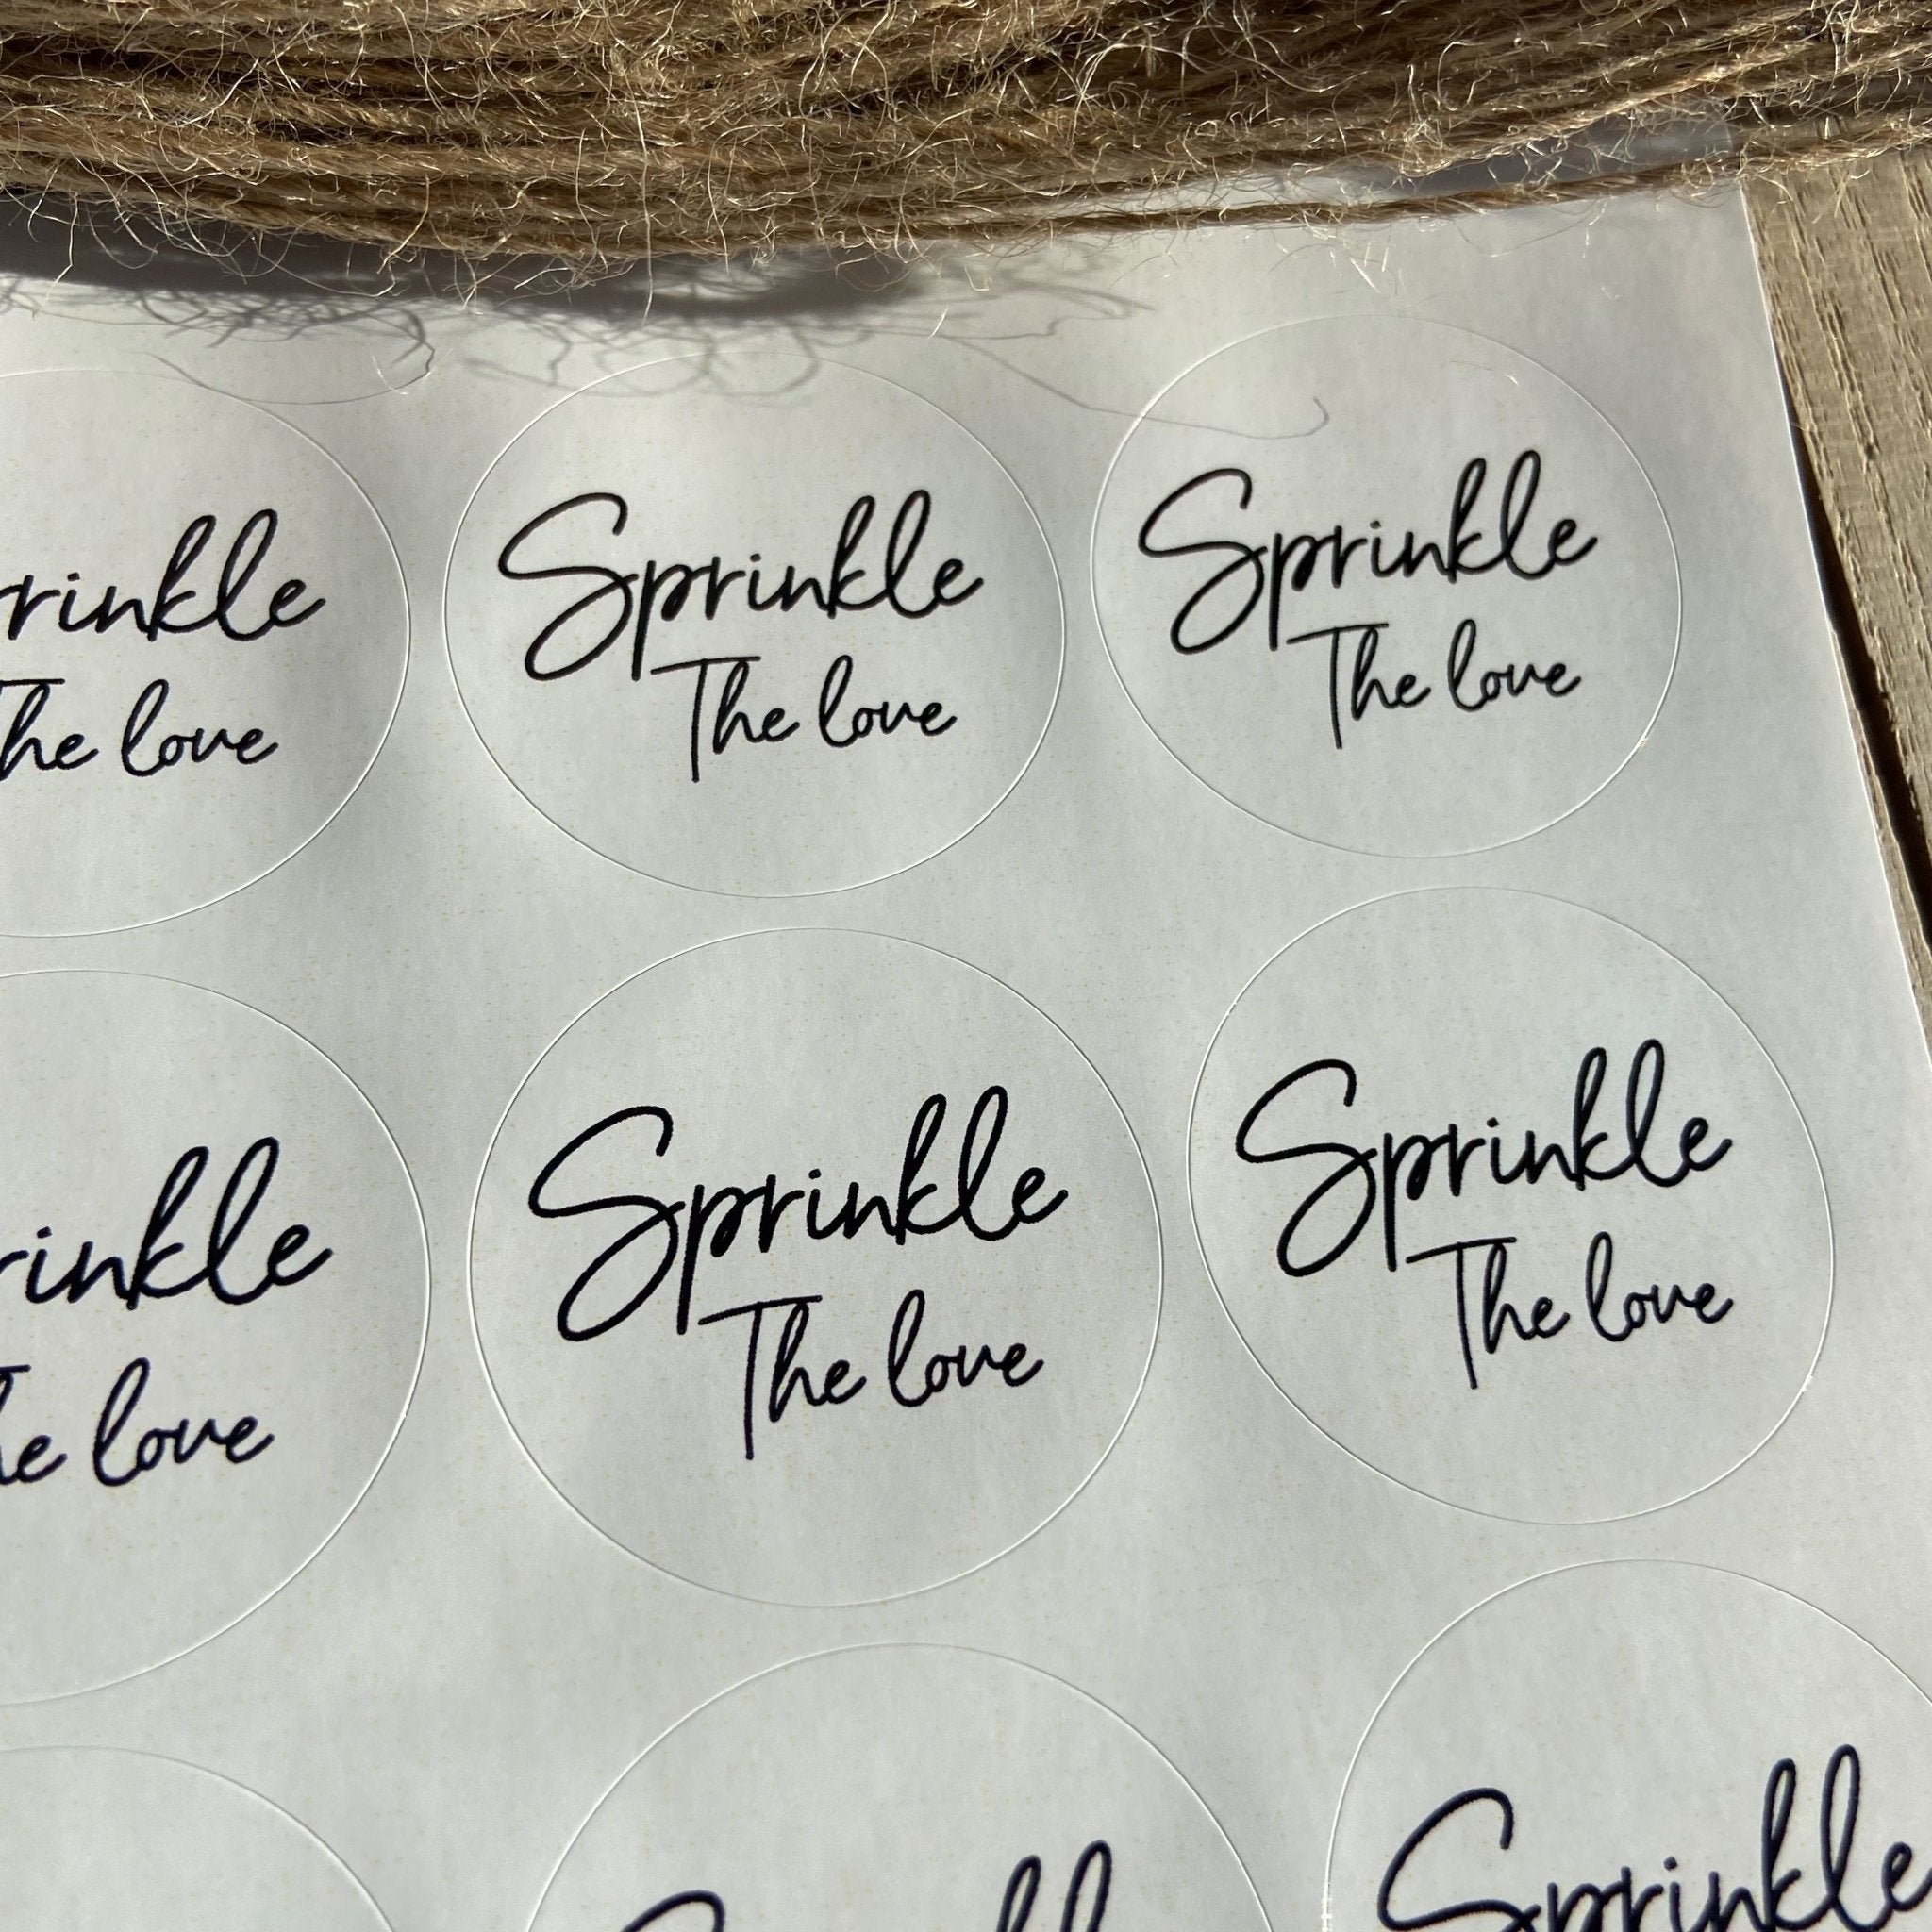 rinkle
The love
Sprinkle
The love
Sprinkle
The love
rinkle
he love
Sprinkle
The love
Sprinkle
The love
Sprinkle